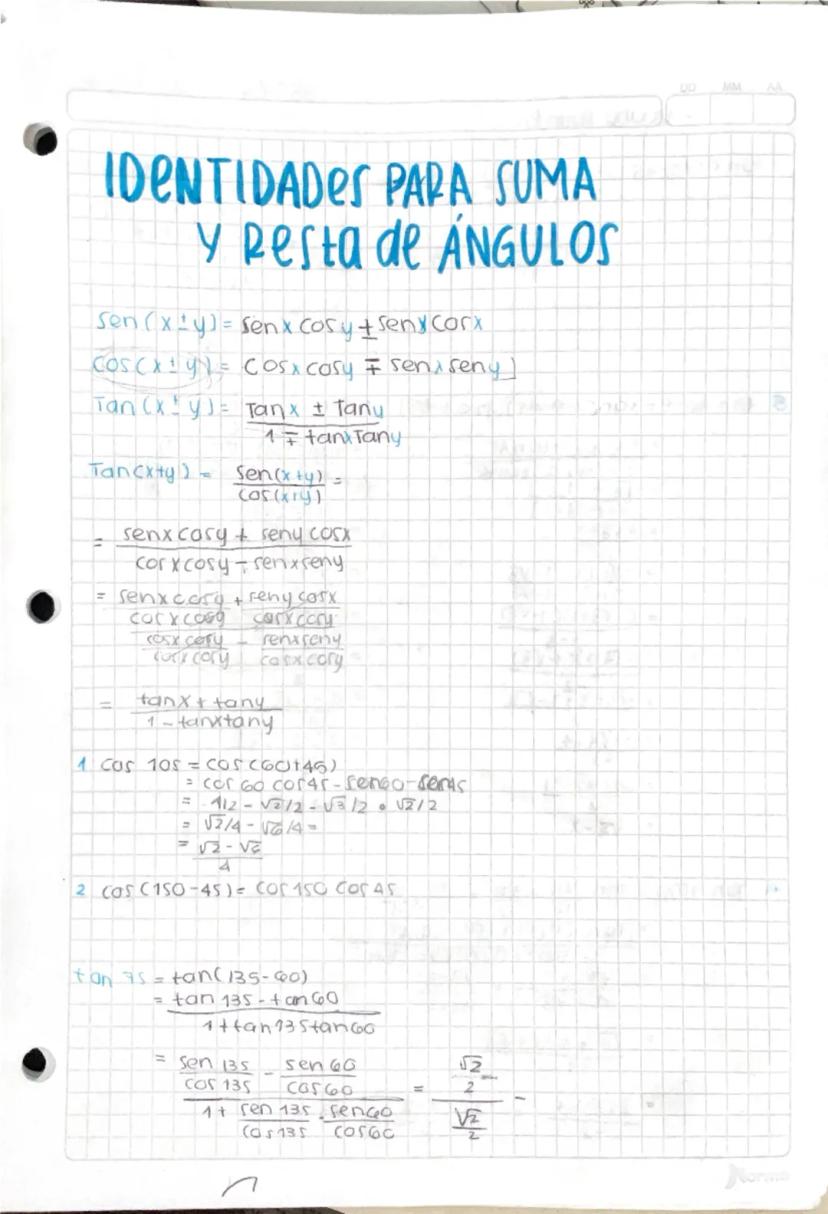 DD MM AA
IDENTIDADES PARA SUMA
Y Resta de ÁNGULOS
sen(x±y)= senx cosy ± seny cosx
cos(x±y)= cosx cosy ∓ senx seny]
Tan(x±y)= Tanx ± Tany
1 ∓ tanxTany
Tan(x+y) = sen(x+y) =
cos(x+y)
= senx cosy + seny cosx
cosx cosy - senx seny
= senx cosy + seny cosx
cosx cosy cosx cosy
cosx cosy - senx seny
cosx cosy cosx cosy
= tanx + tany
1 - tanxtany
1 cos 105 = cos(60+45)
= cos 60 cos45 - sen60 - sen45
= 1/2 - √2/2 - √3/2 • √2/2
= √2/4 - √6/4 =
= √2 - √6
4
2 cos(150-45)= cos 150 cos 45
tan 75 = tan(135-60)
= tan 135 - tan60
1 + tan135tan60
= sen 135 - sen 60 = √2 -
cos 135 cos60 2
1 + sen 135 . sen60 √2
cos135 cos60 2
Norma